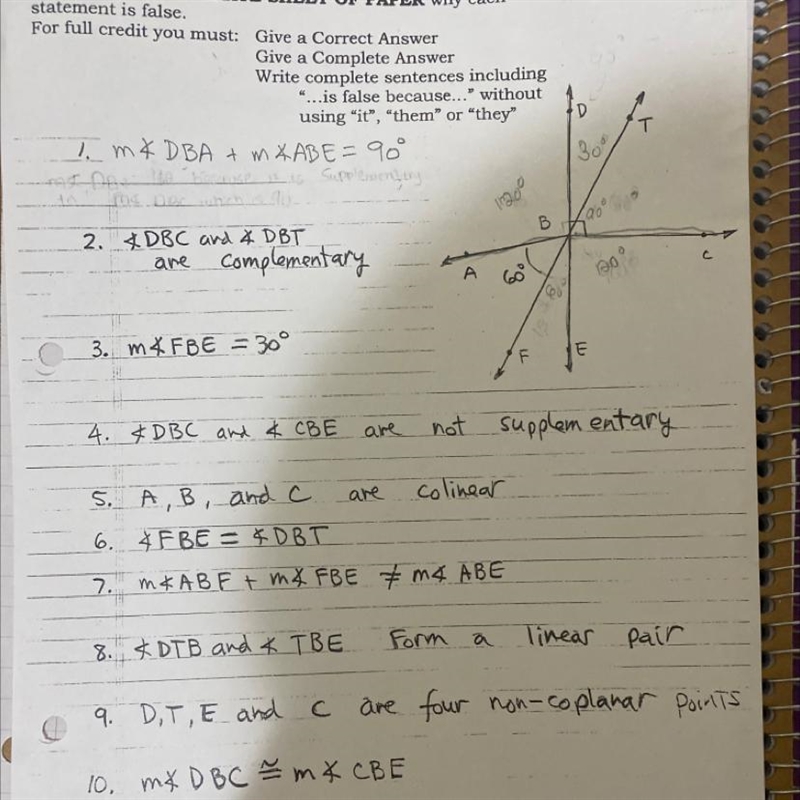 SHEET OF PAPER why each
statement is false.
For full credit you must: Give a Correct Answer
Give a Complete Answer
Write complete sentences including
“...is false because...” without
using “it”, “them” or “they”
1. m∡ DBA + m∡ABE = 90°
because it is Supplementary
2. ∡DBC and ∡ DBT
are complementary
3. m∡FBE = 30°
4. ∡DBC and ∡ CBE are not supplementary
5. A, B, and C are colinear
6. ∡FBE = ∡DBT
7. m∡ABF + m∡ FBE ≠ m∡ ABE
8. ∡DTB and ∡ TBE Form a linear pair
9. D, T, E and C are four non-coplanar POINTS
10. m∡ DBC ≅ m∡ CBE
D
T
30°
120°
B
90°
A
60°
60°
120°
C
F
E